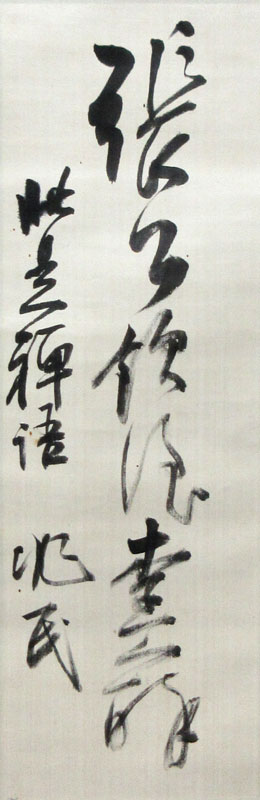 張公飲酒李公酔
此是禅語　兆民